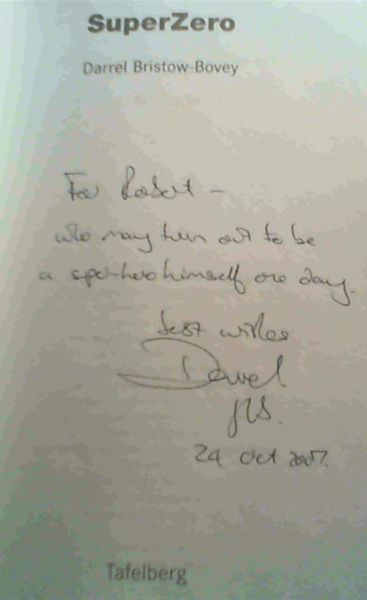 SuperZero
Darrel Bristow-Bovey
For Robert –
who may turn out to be
a himself one day.
best wishes
Darrel
24 Oct 2007.
Tafelberg